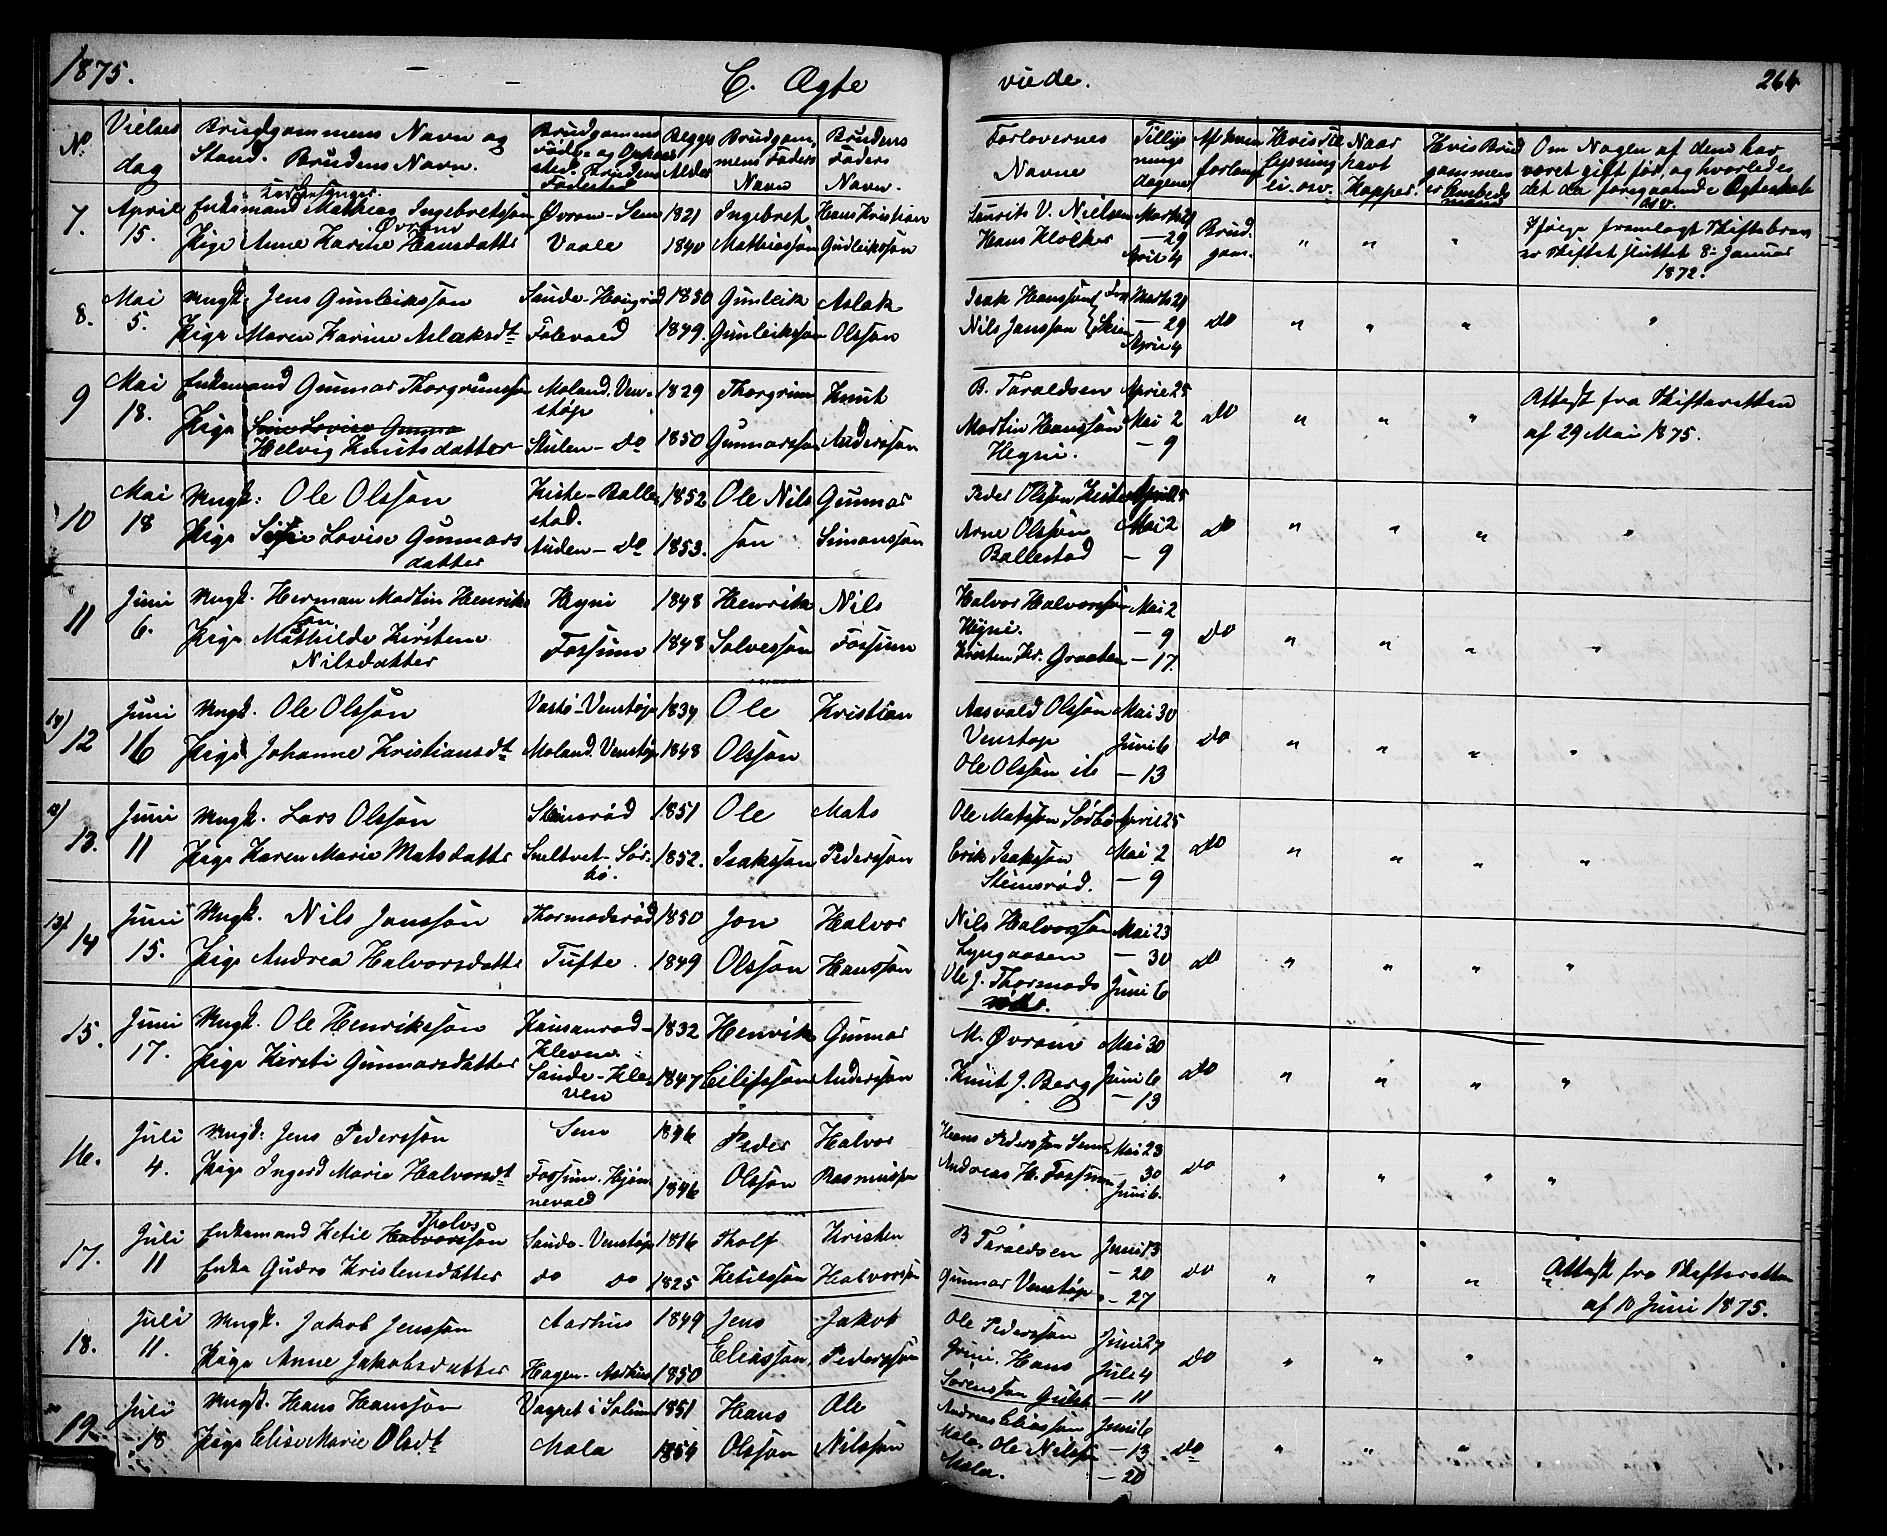 1875.
C. Ægte
viede.
264
No.
Vielses
dag
Brudgommens Navn og
Stand. Brudens Navn.
Brudgommens
Føde- og Opholds
sted. Brudens
Fødested
Begges
Alder
Brudgom
mens Faders
Navn
Brudens
Faders
Navn.
Forlovernes
Navne
Tillys
nings
dagene
Af hvem
forlangt
Hvis Til
lysning
ei. osv.
Naar
havt
Kopper.
Hvis Brud
gommen
er Embeds
mand
Om Nogen af dem har
været gift før, og hvorledes
det da foregaaende Ægteskab
osv.
7.
April
15.
Kirkesanger.
Enkemand Mathias Ingebretsøn
Øvrom
Pige Anne Karine Hansdatter
Øvrom - Sem
Vaale
1821
1840
Ingebret
Mathiassøn
Hans Kristian
Gudleikssøn
Laurits V. Nielsen
Hans Kloker
Marts 21
— 29
April 4
Brud-
gom.
" " "
Ifølge fremlagt Skiftebrev
er Skiftet sluttet 8. Januar
1872.
8.
Mai
5.
Ungk. Jens Gunleikssøn
Pige Maren Karine Aslaksdt
Sande - Haugerød
Folevald
1850
1849.
Gunleik
Gunleikssøn
Aslak
Olssøn
Isak Hanssøn
Nils Janssøn } Skien
Marts 21
— 29
April 4
do
" " " "
9
Mai
18.
Enkemand Gunnar Thorgrimssøn
Pige Sine Lovise Gunna
Helvig Knutsdatter
Moland. Ven-
støp
Stulen - do
1829
1850
Thorgrim
Gunnarssøn
Knut
Anderssøn
B. Taraldsen
Martin Hanssøn
Hegni.
April 25
Mai 2
— 9
do
" " "
Attest fra Skifteretten
af 29 Mai 1875.
10
Mai
18
Ungk: Ole Olssøn
Pige Sine Lovise Gunnars
datter
Kiste - Balle
stad.
Auden - do
1852
1853.
Ole Nils
søn
Gunnar
Simonssøn
Peder Olssøn Kiste
Arne Olssøn
Ballestad
April 25
Mai 2
— 9
do
" " " "
11
Juni
6.
Ungk. Herman Martin Henriks
søn
Pige Mathilde Kirstine
Nilsdatter
Hegni
Fossum
1848
1848
Henrik
Salvessøn
Nils
Fossum
Halvor Halvorssøn
Hegni.
Kristen Kr. Graaten
Mai 2
— 9
— 17.
do
" " " "
12
Juni
16
Ungk. Ole Olssøn
Pige Johanne Kristiansdt
Vastø - Venstøp
Moland. Venstøp
1839
1848
Ole
Olssøn
Kristian
Aasvald Olssøn
Venstøp
Ole Olssøn ib
Mai 30
Juni 6
— 13
do
" " " "
13.
Juni
11
Ungk. Lars Olssøn
Pige Karen Marie Matsdatter
Stensrød
Smeltvet - Sør-
bø.
1851
1852.
Ole
Isakssøn
Mats
Pederssøn
Ole Matssøn Sørbø
Erik Isakssøn
Stensrød.
April 25
Mai 2
— 9
do
" " " "
13)
14
Juni
15.
Ungk. Nils Janssøn
Pige Andrea Halvorsdatter
Thormodsrød
Tufte
1850
1849
Jon
Olssøn
Halvor
Hanssøn
Nils Halvorssøn
Lyngaasen
Ole J. Thormods
rød.
Mai 23
— 30
Juni 6
do
" " " "
15.
Juni
17.
Ungk. Ole Henrikssøn
Pige Kirsti Gunnarsdatter
Hausanrød -
Kleven.
Sande - Kle-
ven
1832
1847
Henrik
Eilifssøn
Gunnar
Anderssøn
M. Øvrom
Knut J. Berg
Mai 30
Juni 6
— 13
do
" " " "
16.
Juli
4.
Ungk. Jens Pederssøn
Pige Ingerd Marie Halvorsdt
Sem
Fossum. Hjøn-
nevald
1846
1846
Peder
Olssøn
Halvor
Rasmussøn
Hans Pederssøn Sem
Andreas H. Fossum
Mai 23
— 30
Juni 6.
do
" " " "
17.
Juli
11
Tholvs
Enkemand Ketil Halvorssøn
Enke Gudro Kristensdatter
Sande - Venstøp
do do
1816
1825
Tholf
Ketilssøn
Kristen
Halvorssøn
B Taraldsen
Gunnar Venstøp
Juni 13
— 20
— 27
do
" " "
Attest fra Skifteretten
af 10 Juni 1875.
18.
Juli
11.
Ungk. Jakob Jenssøn
Pige Anne Jakobsdatter
Aarhus
Hagen - Aarhus
1849
1850
Jens
Eliassøn
Jakob
Pederssøn
Ole Pederssøn
Grini. Hans
Sørenssøn Gulset
Juni 27
Juli 4
— 11
do
" " "
19.
Juli
18
Ungk. Hans Hanssøn
Pige Elise Marie Olsdt
Vagret i Solum
Mæla
1851
1854
Hans
Olssøn
Ole
Nilssøn
Andreas Eliassøn
Mæla. Ole Nilssøn
Mæla.
Juni 6
— 13
— 20
do
" " "